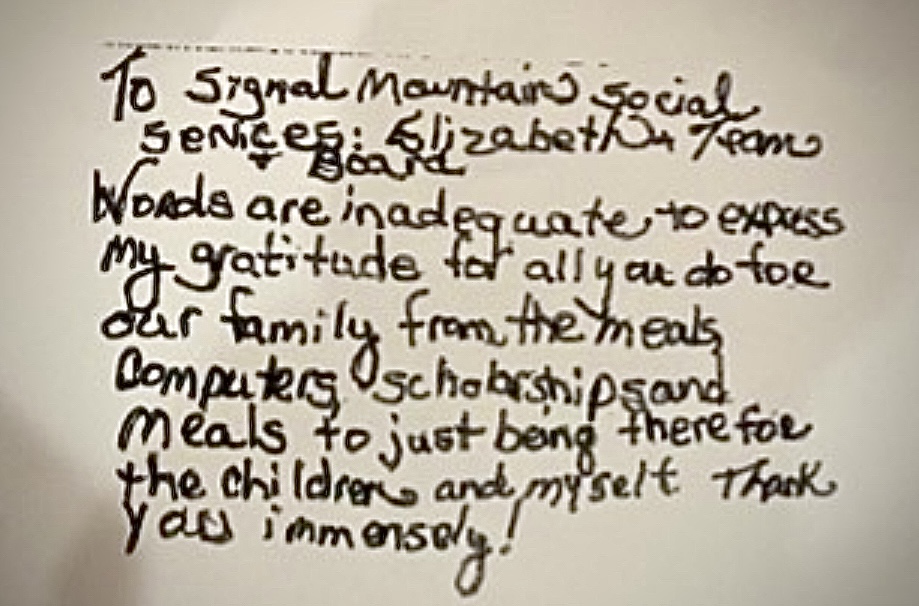 To Signal Mountain Social
Services: Elizabeth, Team
+ Board
Words are inadequate to express
My gratitude for all you do for
our family from the meals,
Computers, scholarships and
Meals to just being there for
the children and myself Thank
you immensely!